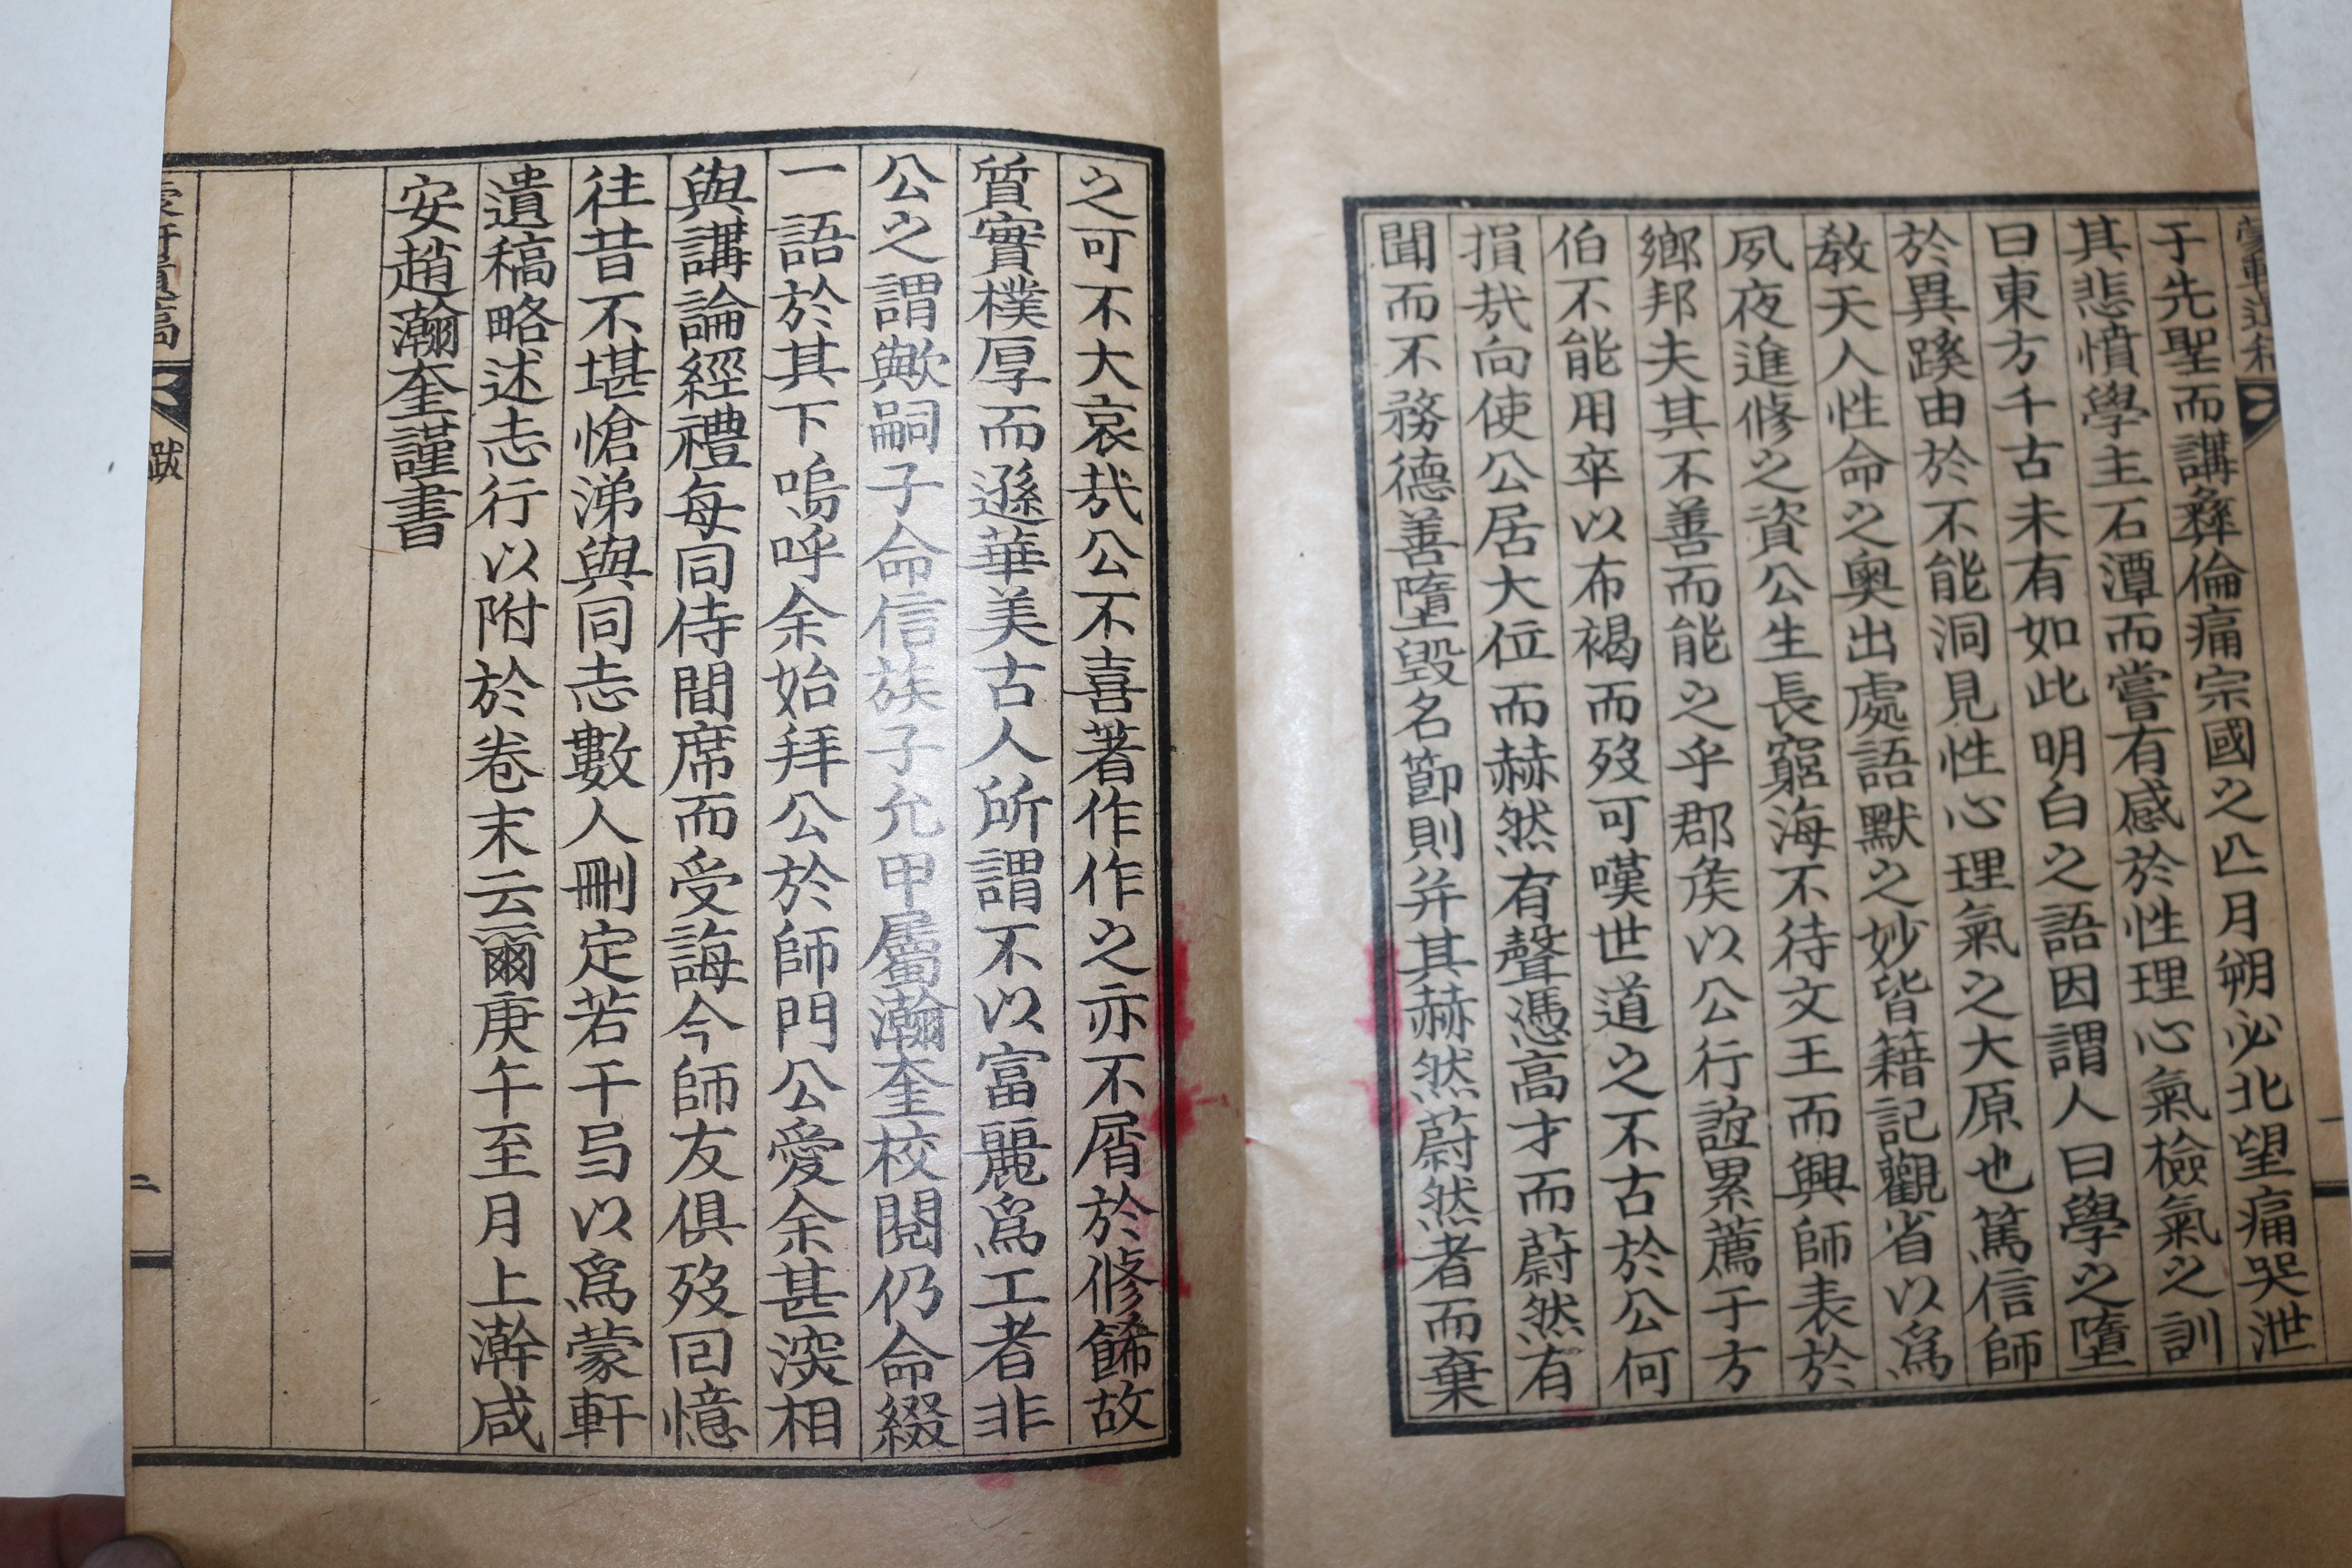 蒙軒遺稿
于先聖而講彜倫痛宗國之亾月朔必北望痛哭泄
其悲憤學主石潭而嘗有感於性理心氣檢氣之訓
曰東方千古未有如此明白之語因謂人曰學之墮
於異蹊由於不能洞見性心理氣之大原也篤信師
敎天人性命之奧出處語默之妙皆籍記觀省以爲
夙夜進修之資公生長窮海不待文王而興師表於
鄉邦夫其不善而能之乎郡矦以公行誼累薦于方
伯不能用卒以布褐而歿可嘆世道之不古於公何
損㢤向使公居大位而赫然有聲憑高才而蔚然有
聞而不務德善墮毀名節則并其赫然蔚然者而棄
之可不大哀㢤公不喜著作作之亦不屑於修餙故
質實樸厚而遜華美古人所謂不以富麗爲工者非
公之謂歟嗣子命信族子允甲屬瀚奎校閱仍命綴
一語於其下嗚呼余始拜公於師門公愛余甚深相
與講論經禮每同侍間席而受誨今師友俱歿回憶
徃昔不堪愴涕與同志數人刪定若干㢧以爲蒙軒
遺稿略述志行以附於卷末云爾庚午至月上澣咸
安趙瀚奎謹書
蒙軒遺稿
跋
二